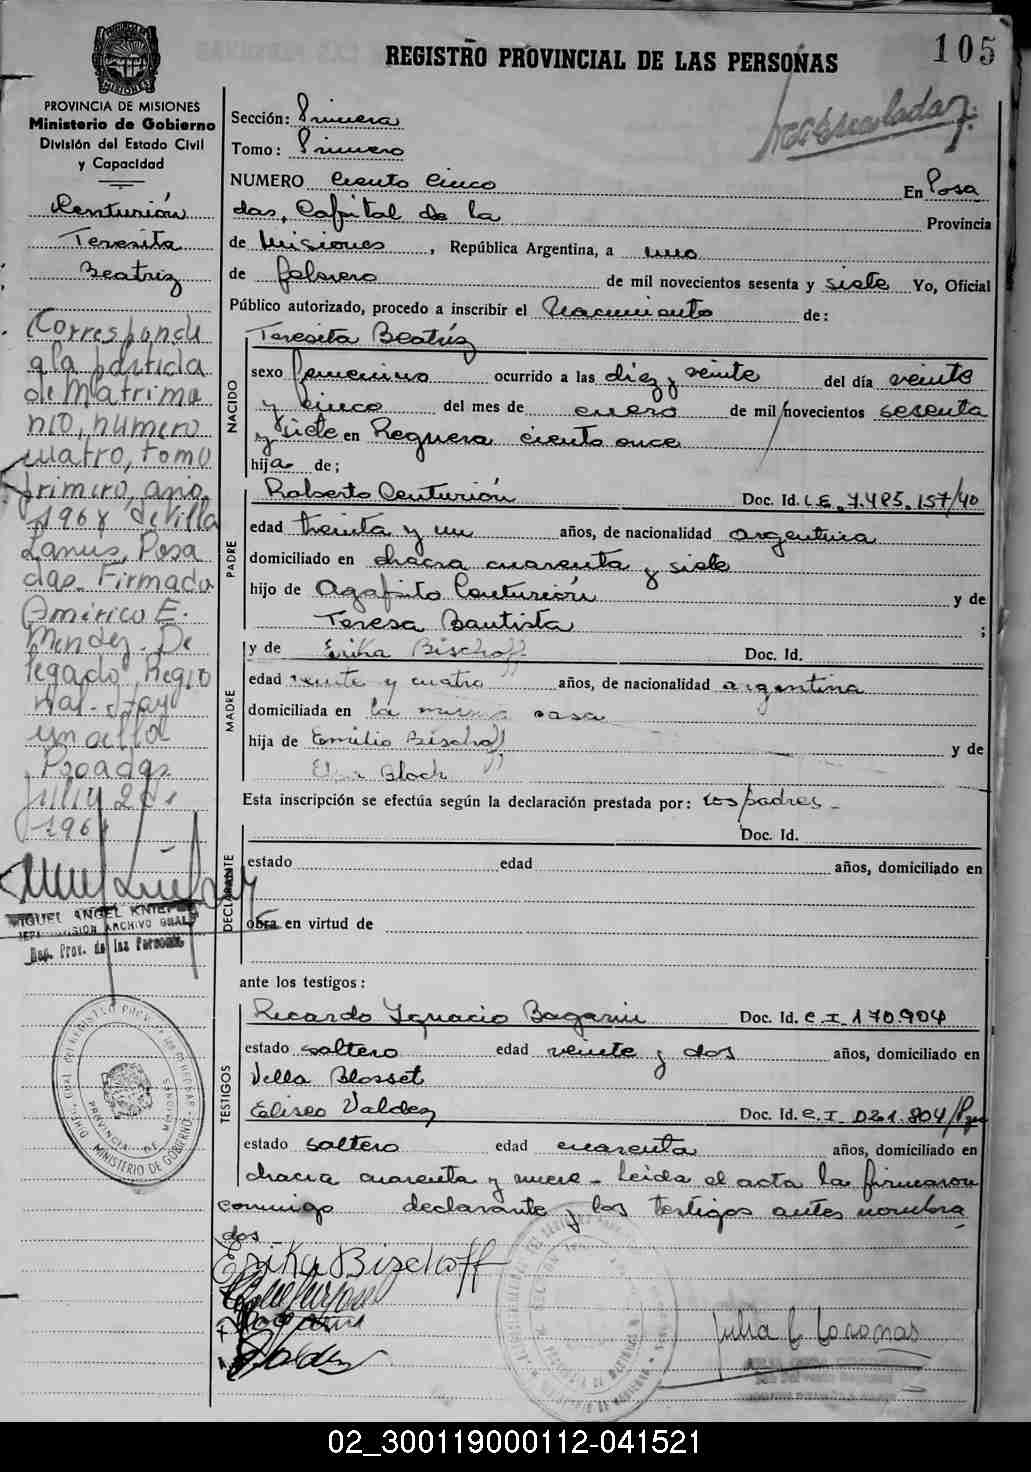 105
REGISTRO PROVINCIAL DE LAS PERSONAS
PROVINCIA DE MISIONES
Ministerio de Gobierno
División del Estado Civil
y Capacidad
Centurión
Teresita
Beatriz
Corresponde
a la partida
de Matrimo
nio, número
cuatro, tomo
primero, año
de Villa
Lanús, Posa
das. Firmado
Américo E.
Mendez. De
legado Regio
nal. Hay
un sello
Posadas
MIGUEL ANGEL
ARCHIVO GRAL
Reg. Prov. de las Personas
PROVINCIA DE MISIONES
MINISTERIO DE GOBIERNO
Sección: Primera
Tomo: Primero
NUMERO Ciento Cinco En Posa
das, Capital de la Provincia
de Misiones, República Argentina, a uno
de febrero de mil novecientos sesenta y siete Yo, Oficial
Público autorizado, procedo a inscribir el Nacimiento de:
NACIDO
Teresita Beatriz
sexo femenino ocurrido a las diez y veinte del día veinte
y cinco del mes de enero de mil novecientos sesenta
y siete en Reguera ciento once
hija de;
PADRE
Roberto Centurión Doc. Id. L.E. 7.485.157/40
edad treinta y un años, de nacionalidad argentina
domiciliado en chacra cuarenta y siete
hijo de Agapito Centurión y de
Teresa Bautista ;
MADRE
y de Erika Bischoff Doc. Id.
edad veinte y cuatro años, de nacionalidad argentina
domiciliada en la misma casa
hija de Emilio Bischoff y de
Bloch
Esta inscripción se efectúa según la declaración prestada por: los padres-
DECLARANTE
Doc. Id.
estado edad años, domiciliado en
obra en virtud de
ante los testigos:
TESTIGOS
Ricardo Ignacio Doc. Id. C.I. 170.904
estado soltero edad veinte y dos años, domiciliado en
Villa Blosset
Eliseo Valdez Doc. Id. C.I. 021.804
estado soltero edad cuarenta años, domiciliado en
chacra cuarenta y nueve - Leída el acta la firmaron
conmigo declarante y los testigos antes nombra
dos-
Erika Bischoff
Valdez
Julia C Coronas
02_300119000112-041521